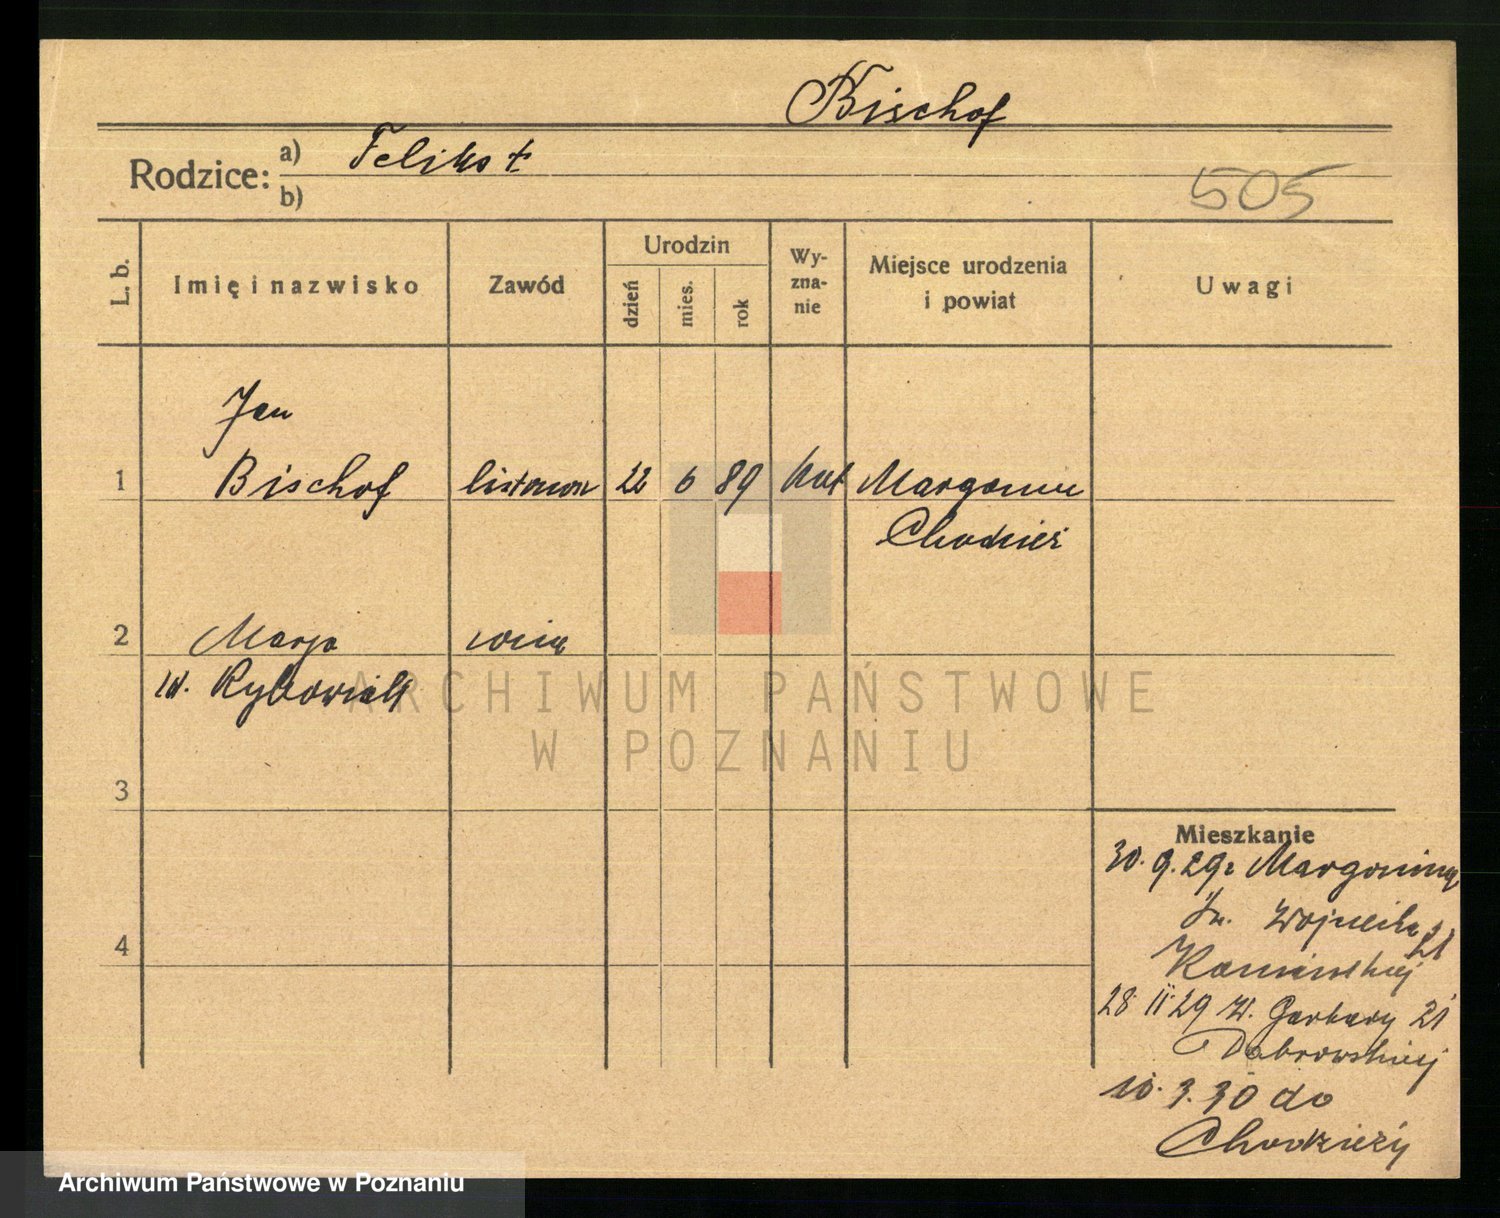 Bischof
Rodzice: a) Feliks +
b)
505
L. b.
Imię i nazwisko
Zawód
Urodzin
dzień
mies.
rok
Wy-
zna-
nie
Miejsce urodzenia
i powiat
Uwagi
Jan
1 Bischof listonon 22 6 89 kat Margonin
Chodzież
2 Marja
id. Rybowiak
3
4
Mieszkanie
30. 9. 29 z Margonina
Św. Wojciecha 21
Kamińskiej
28 11 29 W. Garbary 21
Dabrowskiej
10. 3. 30 do
Chodzieży
ARCHIWUM PAŃSTWOWE
W POZNANIU
Archiwum Państwowe w Poznaniu